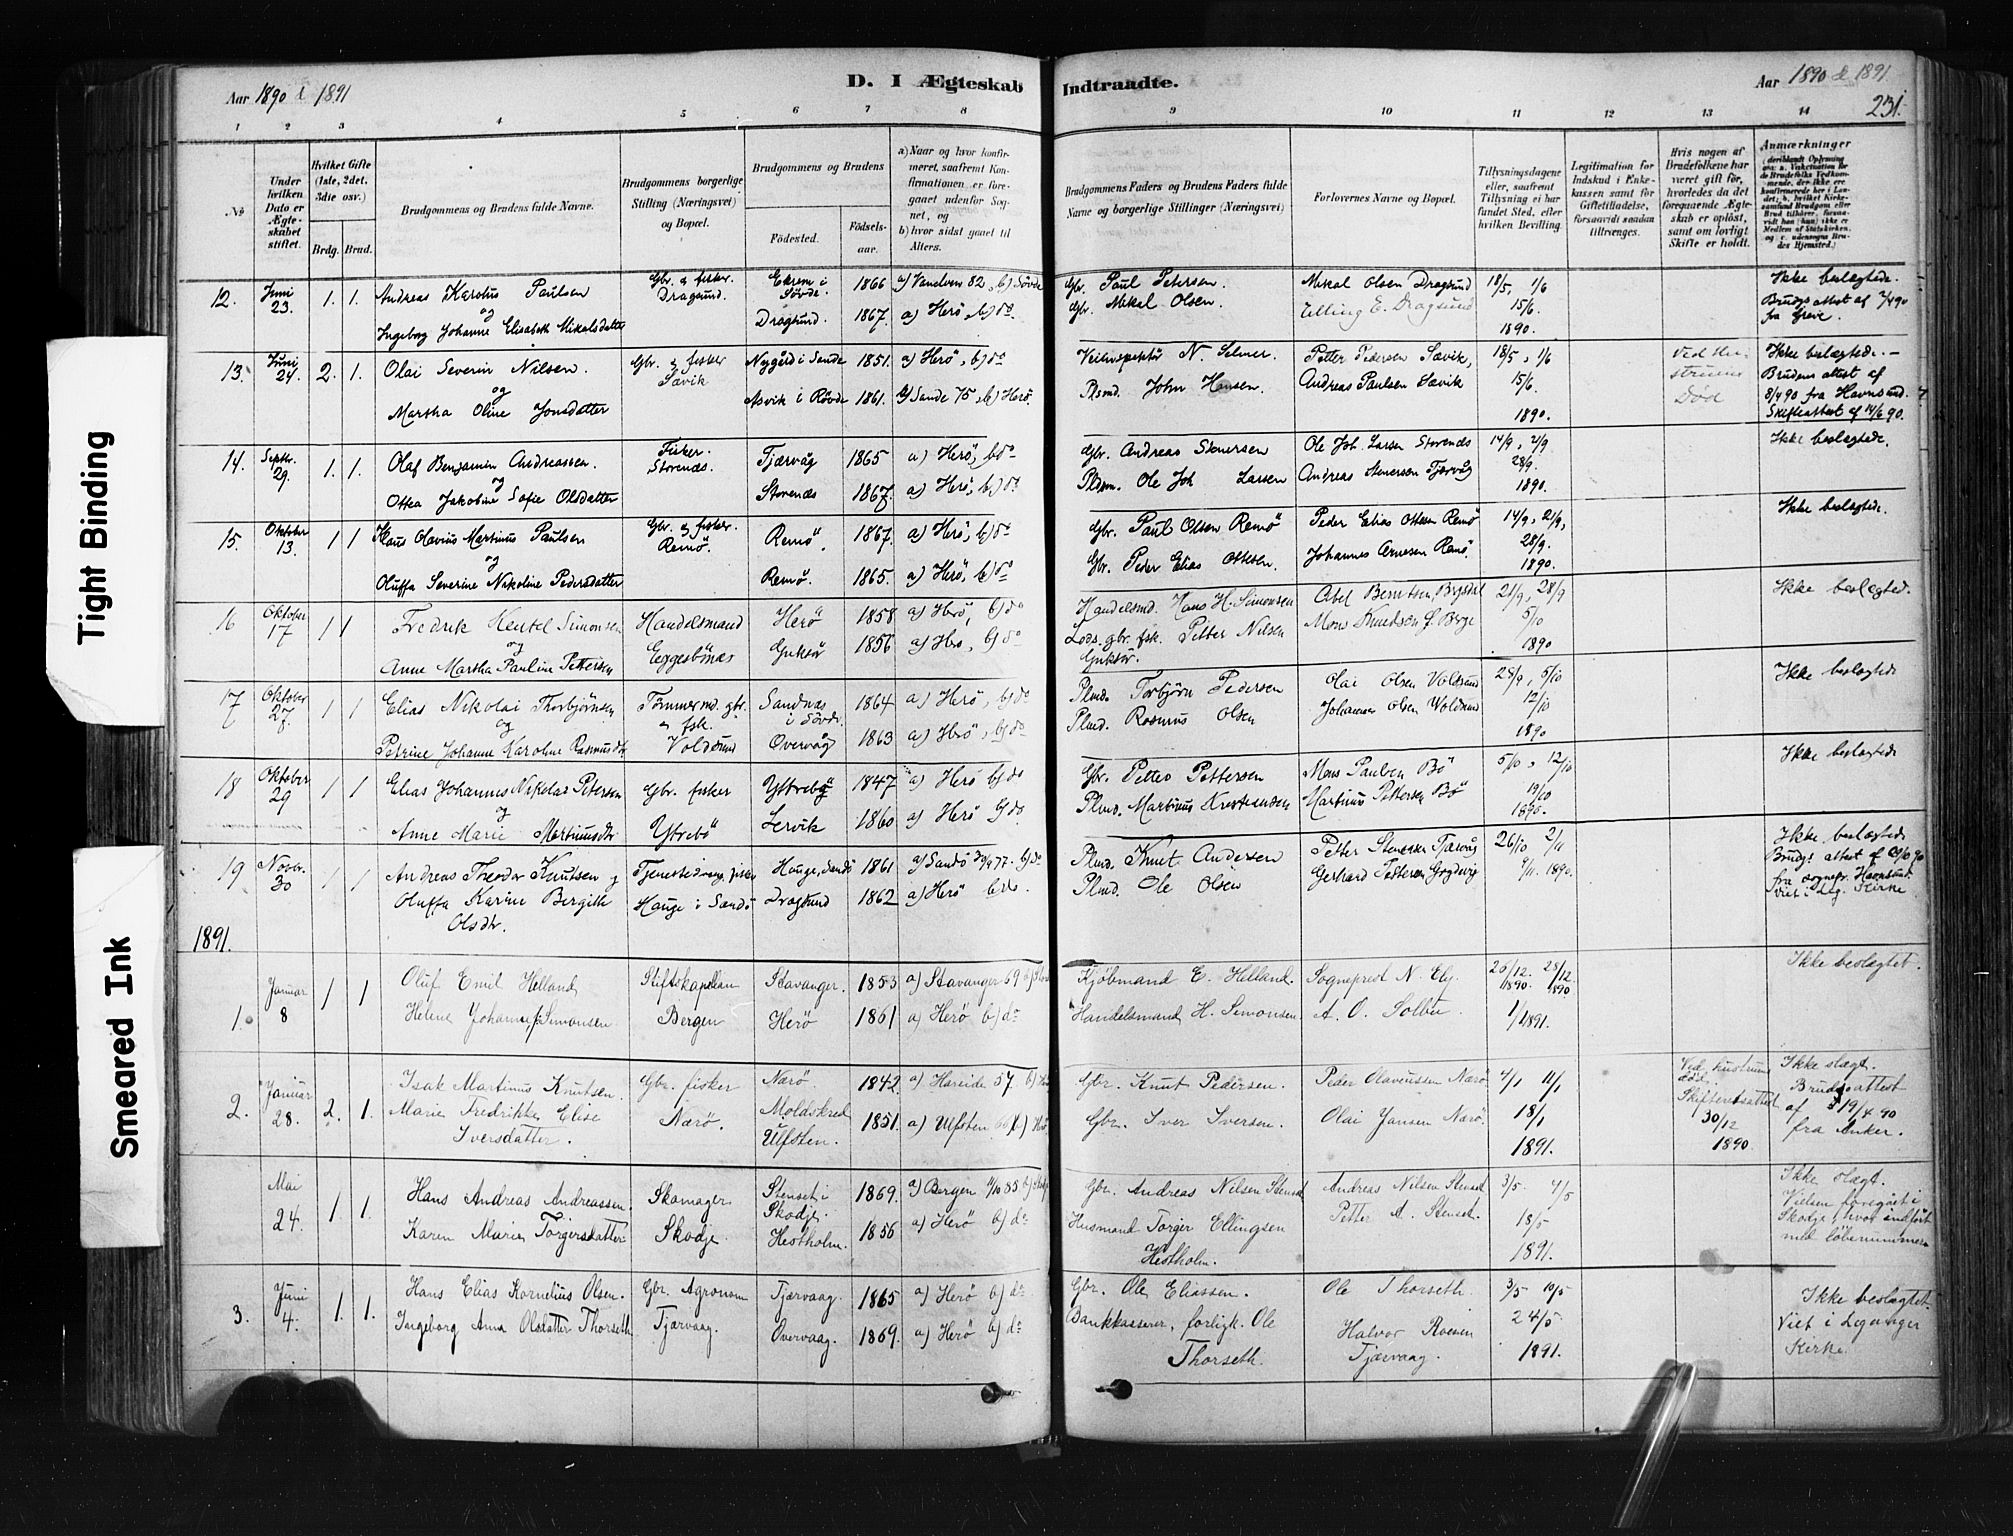 Aar 1890 & 1891
D. I Ægteskab Indtraadte.
Aar 1890 & 1891
231.
1 2 3 4 5 6 7 8 9 10 11 12 13 14
No
Under hvilken Dato er Ægteskabet stiftet.
Hvilket Gifte (1ste, 2det, 3die osv.)
Brdg. Brud.
Brudgommens og Brudens fulde Navne.
Brudgommens borgerlige Stilling (Næringsvei) og Bopæl.
Brudgommens og Brudens
Fødested.
Fødselsaar.
a) Naar og hvor konfirmeret, saafremt Konfirmationen er foregaaet udenfor Sognet, og
b) hvor sidst gaaet til Alters.
Brudgommens Faders og Brudens Faders fulde Navne og borgerlige Stillinger (Næringsvei)
Forlovernes Navne og Bopæl.
Tillysningsdagene eller, saafremt Tillysning ei har fundet Sted, efter hvilken Bevilling.
Legitimation for Indskud i Enkekassen samt for Giftetilladelse, forsaavidt saadan tiltrænges.
Hvis nogen af Brudefolkene har været gift før, hvorledes da det foregaaende Ægteskab er opløst, samt om lovligt Skifte er holdt.
Anmærkninger
12. Juni 23. 1. 1. Andreas Karolus Paulsen Gbr. & fisker. Dragsund. Ekrem i Søvde. 1866 a) Vanelven 82, b) Søvde Gbr. Paul Petersen. Mikal Olsen Dragsund 18/5, 1/6 Ikke beslægtede.
og Ingeborg Johanne Elisabeth Mikalsdatter Dragsund. 1867. a) Herö, b) do Gbr. Mikal Olsen. Elling E. Dragsund 15/6 1890. Brudgs attest af 7/4 90 fra Greve.
13. Juni 24. 2. 1. Olai Severin Nilsen. Gbr. & fisker Sævik Nygård i Sande 1851. a) Herö, b) do N. Selmer. Petter Pedersen Sævik, 18/5, 1/6 Ikke beslægtede. –
og Martha Oline Jonsdatter Aasvik i Rövde 1861. a) Sande 75, b) Herö. Plsmd. John Hansen. Andreas Paulsen Sævik 15/6 1890. Død Brudens attest af 8/4 90 fra Havnsund. Skifteattest af 14/6 90.
14. Septbr. 29. 1. 1. Olaf Benjamin Andreassen. Fisker. Storenæs. Tjærvåg 1865 a) Herö, b) do Gbr. Andreas Stenersen Ole Joh. Larsen Storenæs 14/9, 21/9 Ikke beslægtede.
og Ottea Jakobine Sofie Olsdatter Storenæs 1867. a) Herö, b) do Pldsm. Ole Joh Larsen Andreas Stenersen Tjærvåg 28/9. 1890.
15. Oktober 13. 1 1 Klaus Olavius Martinus Paulsen Gbr. & fisker. Remö. Remö. 1867. a) Herö, b) do Gbr. Paul Olsen Remö Peder Elias Ottesen Remö 14/9, 21/9, Ikke beslægtede.
og Oluffa Severine Nikoline Pedersdatter Remö. 1865. a) Herö, b) do Gbr. Peder Elias Ottesen. Johannes Arnesen Remö. 28/9. 1890.
16 Oktober 17 1 1 Fredrik Kentel Simonsen Handelsmand Herö 1858 a) Herö, b) do Handelsmd. Hans H. Simonsen Abel Berntsen, Brysdal 21/9, 28/9 Ikke beslægted.
og Anne Martha Pauline Pettersen Eggesbönæs Gurskör 1856 a) Herö, b) do Lods. gbr. fsk. Petter Nilsen Gurskör. Mons Knudsen f. Berge 5/10 1890
17 Oktober 27. 1 1 Elias Nikolai Thorbjørnsen Tømmermd. gbr. & fsk. Voldsund Sandnæs i Søvde 1864 a) Herö, b) do Plmd. Torbjørn Pedersen Olai Olsen Voldsund 28/9, 5/10 Ikke beslægtede
og Petrine Johanne Karoline Rasmusdtr Overvåg 1863 a) Herö, b) do Plmd. Rasmus Olsen Johannes Olsen Voldsund 12/10 1890
18 Oktober 29 1 1 Elias Johannes Nikolas Petersen Gbr. fisker Yttrebö 1847 a) Herö b) do Gbr. Petter Pettersen Mons Paulsen Bö 5/10, 12/10 Ikke beslægtede
og Anne Marie Martinusdtr Yttrebö Lervik 1860 a) Herö b) do Plmd. Martinus Kristiansen Martinus Pettersen Bö 19/10 1890.
19 Novbr. 30 1 1 Andreas Theodor Knutsen og Tjenestedreng, fisker Hauge, Sandö 1861 a) Sandö 30/9 77. b) do Plmd. Knut Andersen Petter Stenersen Tjærvåg 26/10 2/11 Ikke beslægtede
Oluffa Karine Bergitte Olsdtr. Hauge i Sandö Dragsund 1862 a) Herö b) do. Plmd. Ole Olsen Gerhard Petersen Gjydsvig 9/11. 1890. Brudgs attest af 20/10 90 fra sognepr. Havnsund. Viet i Leg. Kirke
1891.
1. Januar 8 1 1 Oluf Emil Helland Stiftskapellan Stavanger. 1853 a) Stavanger 69 Kjöbmand E. Helland. Sogneprest N. Ely. 26/12 1890. 28/12 1890 Ikke beslægtet.
Helene Johanne Simonsen. Bergen Herö 1861 a) Herö b) do Handelsmand H. Simonsen. A. O. Solbu. 1/1 1891.
2. Januar 28. 2. 1. Isak Martinus Knutsen. Gbr. fisker Nærö 1842 a) Hareide 57. Gbr. Knut Pedersen. Peder Olaveusen Nærö. 4/1 11/1 Ved hustruens död. Skifteretsattest 30/12 1890 Ikke slægt.
Marie Fredrikke Elise Iversdatter. Nærö. Moldskred Ulfsten. 1851. a) Ulfsten Gbr. Iver Iversen. Olai Jansen Nærö. 18/1 1891. Bruds attest af 19/4 90 fra Anker.
Mai 24. 1. 1. Hans Andreas Andreassen. Skomager Stenset i Skodje. 1869. a) Bergen 11/10 85 Gbr. Andreas Nilsen Stenset Andreas Nilsen Stenset 3/5. 4/5 Ikke slægt.
Karen Marie Torgersdatter Skodje. Hestholm. 1856 a) Herö b) do Husmand Torger Ellingsen Hestholm. Petter A. Stenset. 18/5 1891. Vielsen foregået i Skodje, hvor indført med löbenummer
3. Juni 4. 1. 1. Hans Elias Kornelius Olsen. Gbr. Agronom Tjærvaag. 1865 a) Herö b) do Gbr. Ole Eliassen. Ole Thorseth. 3/5 10/5 Ikke beslægtet.
Ingeborg Anna Olsdatter Thorseth Tjærvaag. Overvaag. 1869. a) Herö b) do Bankkasserer, forligk. Ole Thorseth. Halvor Roenen Tjærvaag. 24/5 1891. Viet i Leganger Kirke.
Tight Binding
Smeared Ink